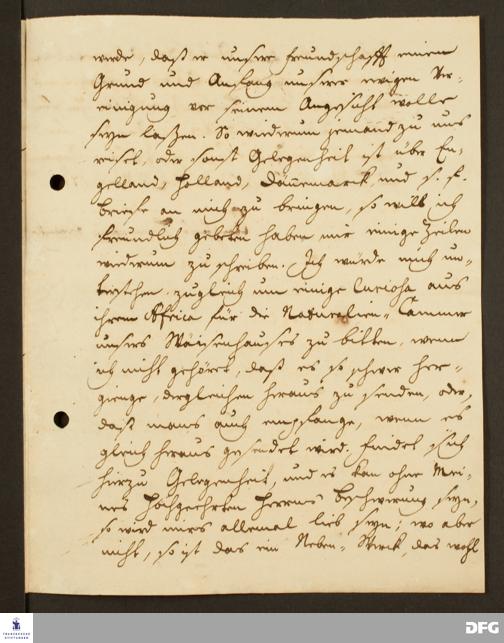 werde, daß er unsere Freundschafft einen
Grund und Anfang unserer ewigen Ver-
einigung vor seinem Angesicht wolle
seyn laßen. So wiederum jemand zu uns
reiset, oder sonst Gelegenheit ist über En-
gelland, Holland, Dännemarck, und s. f.
briefe an mich zu bringen, so will ich
freundlich gebeten haben mir einige Zeilen
wiederum zu schreiben. Ich würde mich un-
terstehen zugleich um einige Curiosa aus
ihrem Africa für die Naturalien-Cammer
unsers Wäisenhauses zu bitten, wenn
ich nicht gehöret, daß es so schwer her-
gienge, dergleichen heraus zu senden, oder,
daß mans auch empfange, wenn es
gleich heraus gesendet wird. Findet sich
hierzu Gelegenheit, und es kan ohne Mei-
nes Hochgeehrten Herrns beschwerung seyn,
so wird mirs allemal lieb seyn; wo aber
nicht, so ist das ein Neben-Werck, das wohl
FRANCKESCHE
STIFTUNGEN
DFG